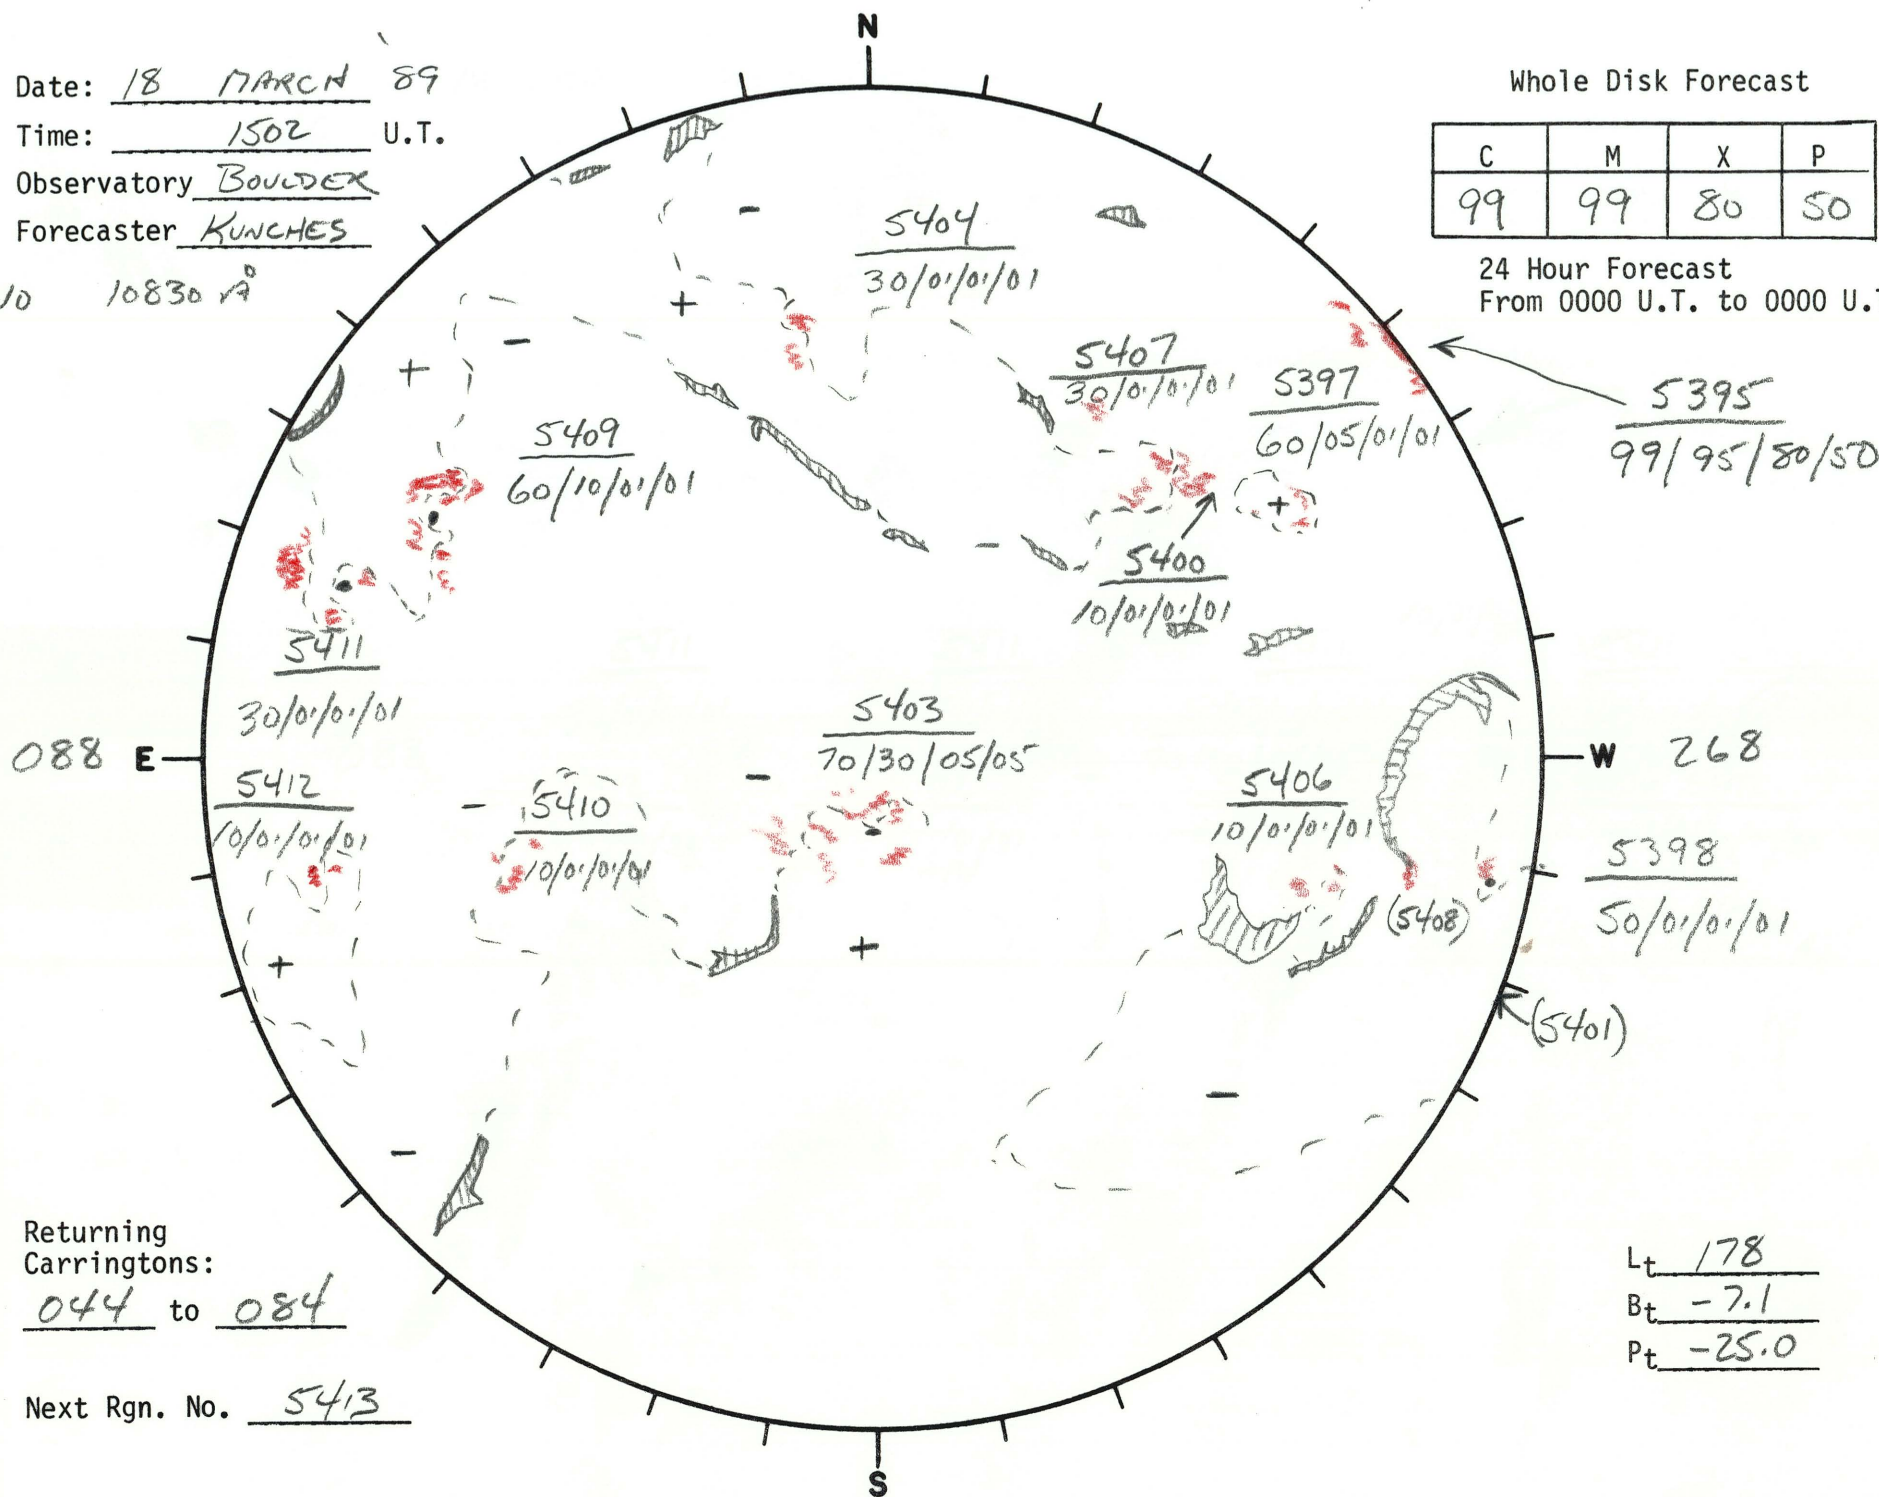 N
Date: 18 MARCH 89
Time: 1502 U.T.
Observatory BOULDER
Forecaster KUNCHES
10 10830 Å
Whole Disk Forecast
C M X P
99 99 80 50
24 Hour Forecast
From 0000 U.T. to 0000 U.T
5404
30/01/01/01
5407
30/01/01/01
5397
60/05/01/01
5395
99/95/80/50
5409
60/10/01/01
5400
10/01/01/01
5411
30/01/01/01
5403
70/30/05/05
088 E
W 268
5412
10/01/01/01
5410
10/01/01/01
5406
10/01/01/01
5398
50/01/01/01
(5408)
(5401)
Returning
Carringtons:
044 to 084
Next Rgn. No. 5413
Lt 178
Bt -7.1
Pt -25.0
S